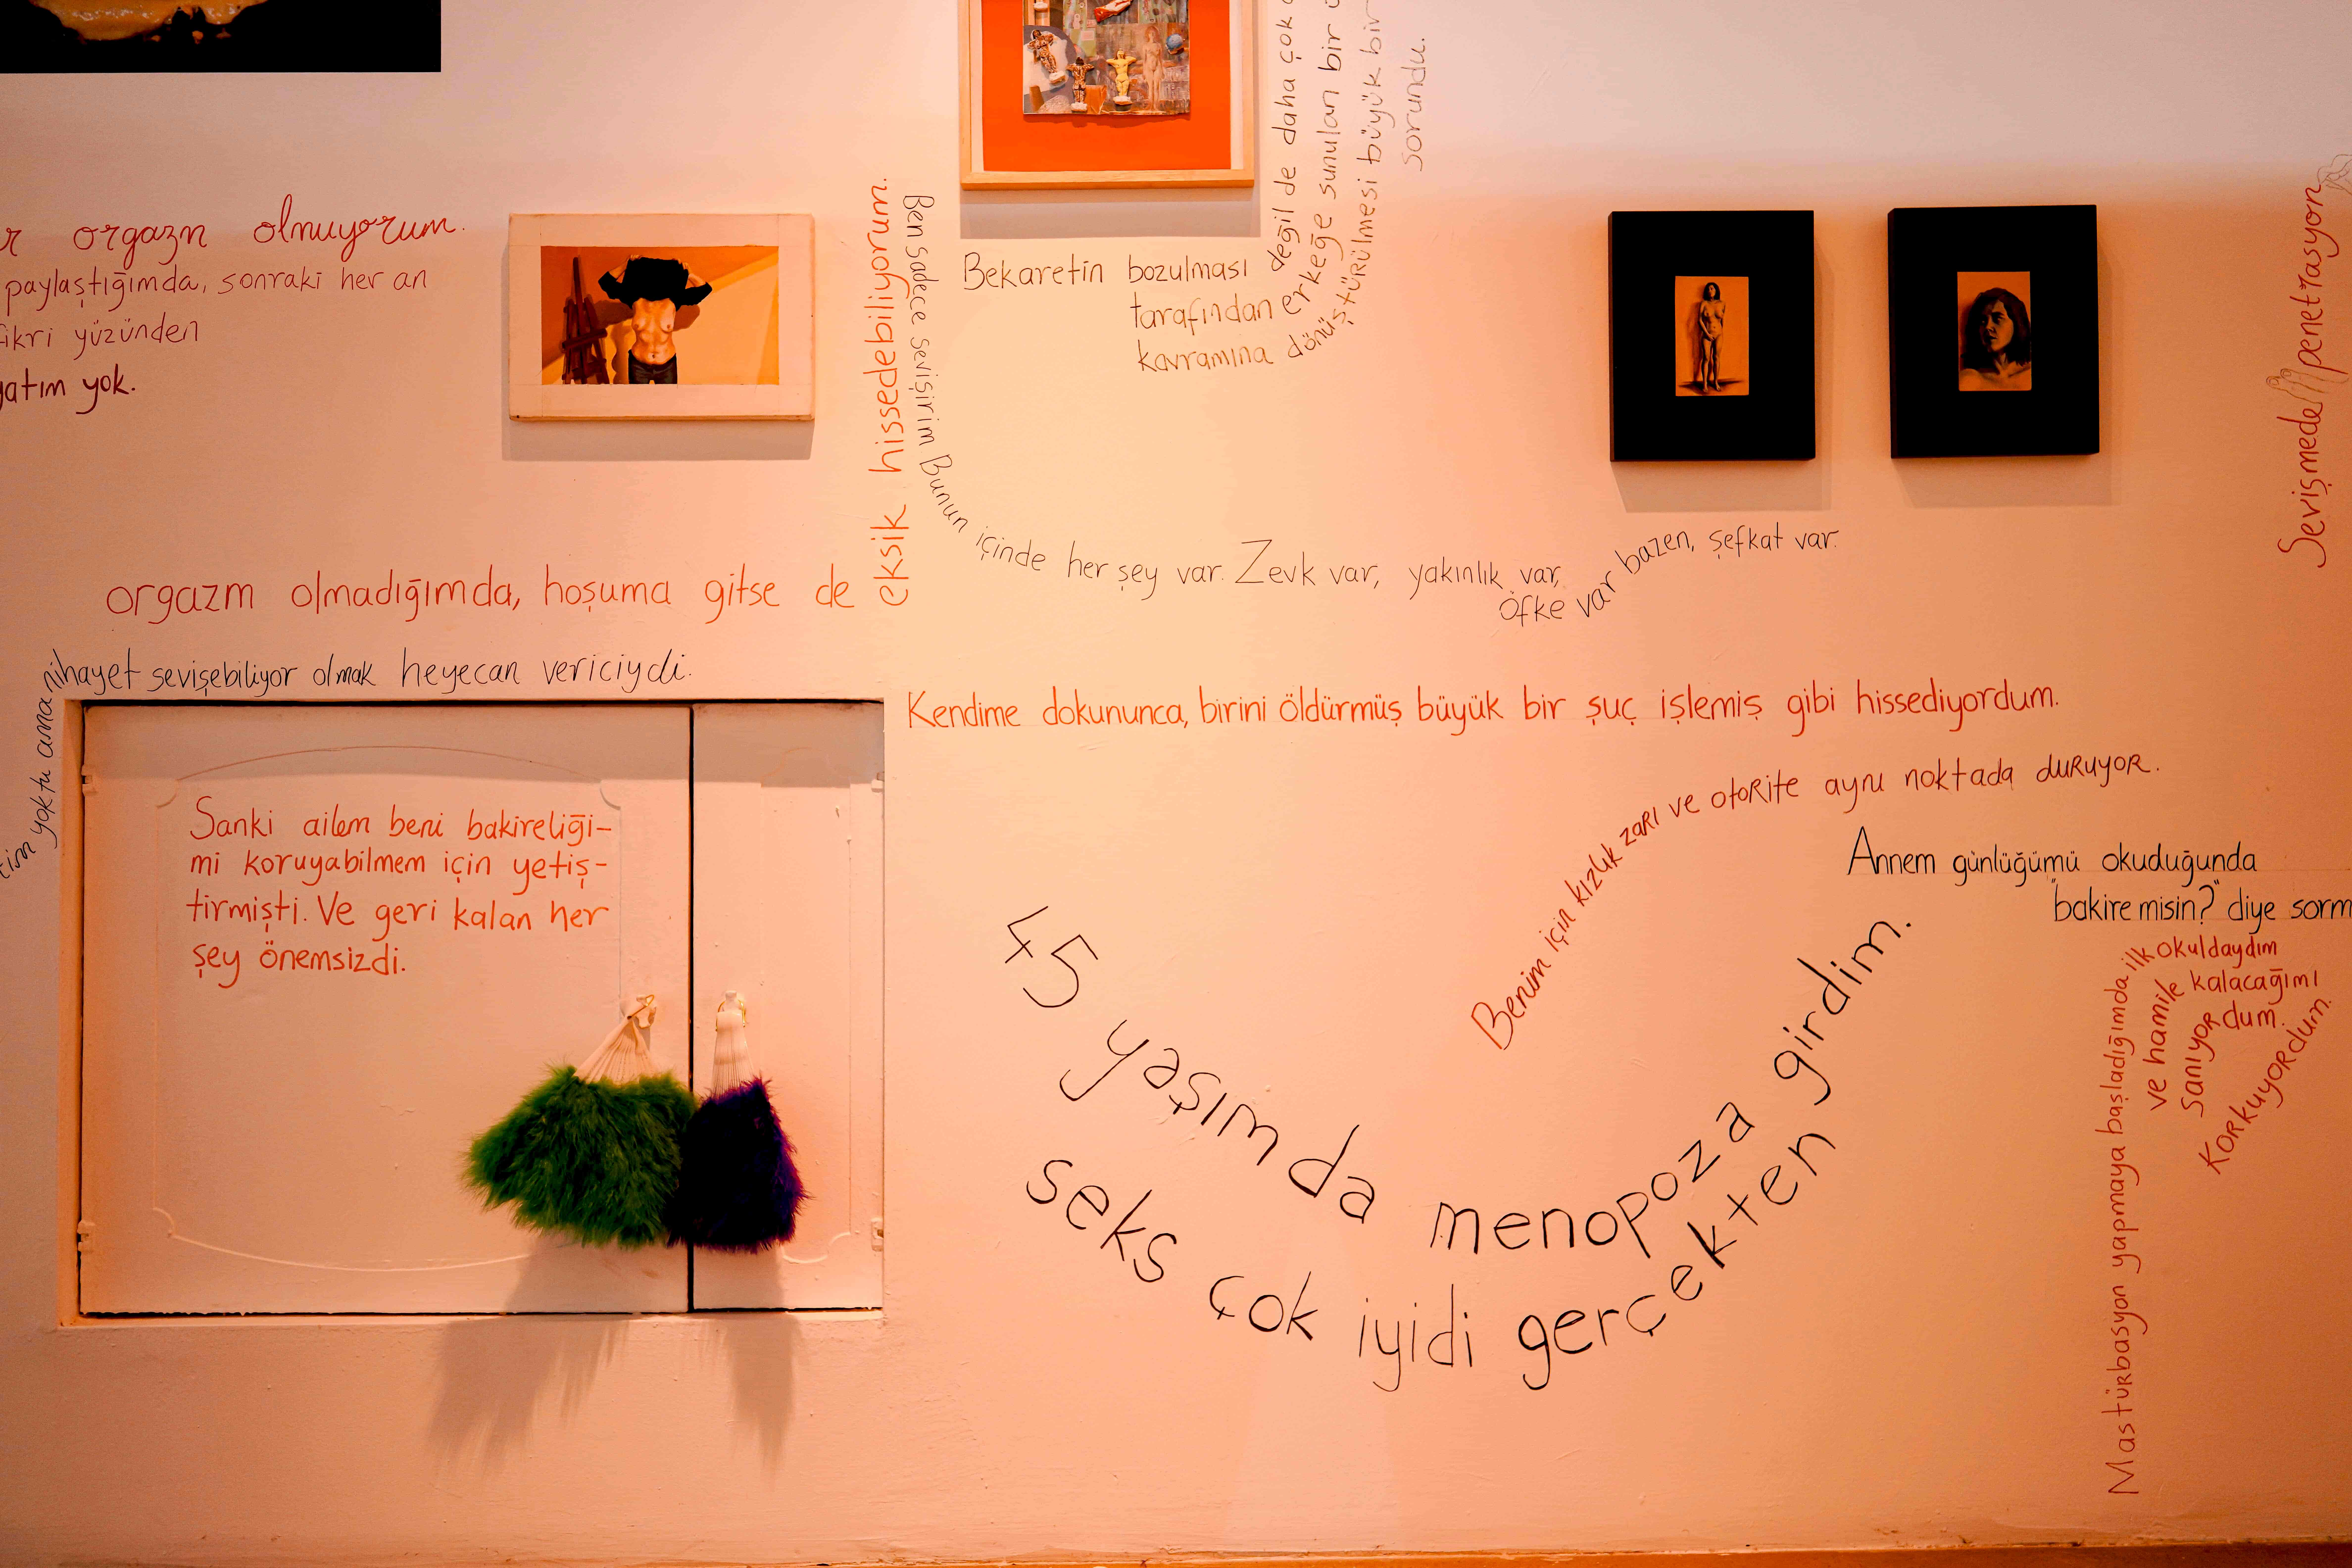 orgazm olmuyorum.
paylaştığımda, sonraki her an
fikri yüzünden
yok.
orgazm olmadığımda, hoşuma gitse de
eksik hissedebiliyorum.
Ben sadece sevişirim Bunun içinde her şey var. Zevk var, yakınlık var,
öfke var bazen, şefkat var.
Bekaretin bozulması değil de daha çok
tarafından erkeğe sunulan bir
kavramına dönüştürülmesi büyük bir
sorundu.
Sevişmede penetrasyon
yoktu ama nihayet sevişebiliyor olmak heyecan vericiydi.
Kendime dokununca, birini öldürmüş büyük bir şuç işlemiş gibi hissediyordum.
Sanki ailem beni bakireliği-
mi koruyabilmem için yetiş-
tirmişti. Ve geri kalan her
şey önemsizdi.
Benim için kızlık zarı ve otorite aynı noktada duruyor.
Annem günlüğümü okuduğunda
"bakire misin?" diye sorm
45 yaşımda menopoza girdim.
seks çok iyidi gerçekten
Mastürbasyon yapmaya başladığımda ilk okuldaydım
ve hamile kalacağımı
sanıyordum.
Korkuyordum.